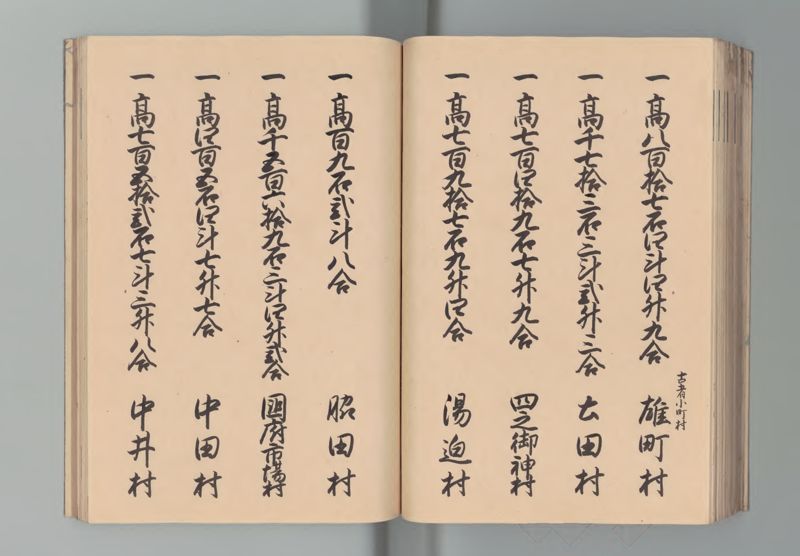 古者小町村
一 髙八百拾七石四斗四升九合 雄町村
一 髙千七拾三石三斗弐升三合 土田村
一 髙七百四拾九石七升九合 四之御神村
一 髙七百九拾七石九升四合 湯迫村
一 髙百九石弐斗八合 昭田村
一 髙千五百六拾九石三斗四升弐合 國府市場村
一 髙四百五石四斗七升七合 中田村
一 髙七百五拾弐石七斗三升八合 中井村